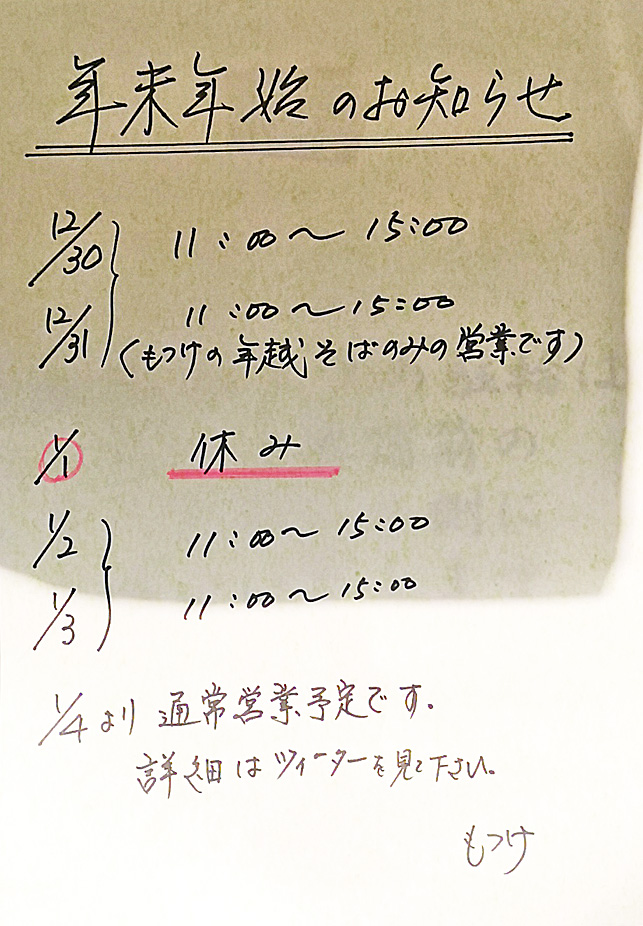 年末年始のお知らせ
12/30 11:00〜15:00
12/31 11:00〜15:00
(もつけの年越そばのみの営業です)
1/1 休み
1/2 11:00〜15:00
1/3 11:00〜15:00
1/4より通常営業予定です.
詳細はツィーターを見て下さい。
もつけ